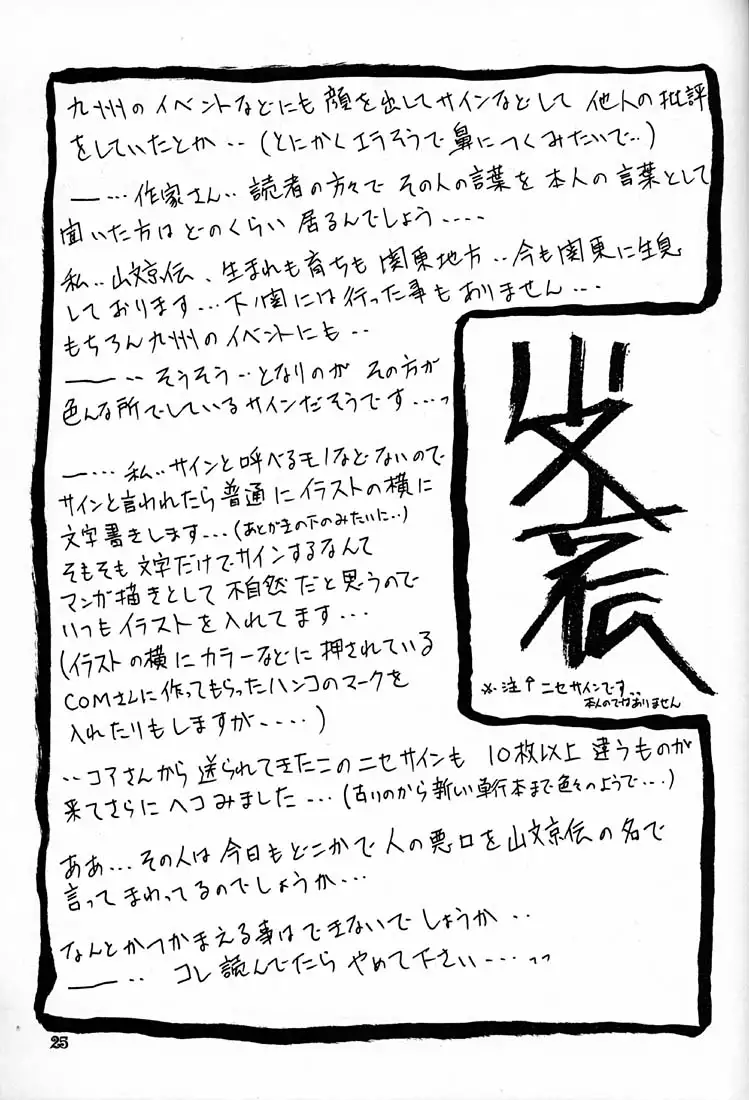 九州のイベントなどにも顔を出してサインなどして他人の批評
をしていたとか‥(とにかくエラそうで鼻につくみたいで‥)
―…作家さん‥読者の方々でその人の言葉を本人の言葉として
聞いた方はどのくらい居るんでしょう‥‥
私‥山文京伝、生まれも育ちも関東地方‥今も関東に生息
しております…下ノ関には行った事もありません…
もちろん九州のイベントにも‥
―‥そうそう‥となりのが その方が
色んな所でしているサインだそうです…っ
―…私‥サインと呼べるモノなどないので
サインと言われたら普通にイラストの横に
文字書きします…(あとがきの下のみたいに‥)
そもそも文字だけでサインするなんて
マンガ描きとして不自然だと思うので
いつもイラストを入れてます…
(イラストの横にカラーなどに押されている
COMさんに作ってもらったハンコのマークを
入れたりもしますが‥‥)
山文京伝
※注↑ニセサインです‥
本人のではありません
‥コアさんから送られてきたこのニセサインも10枚以上違うものが
来てさらにヘコみました…(古いのから新しい単行本まで色々のようで…)
ああ…その人は今日もどこかで人の悪口を山文京伝の名で
言ってまわってるのでしょうか…
なんとかつかまえる事はできないでしょうか‥
―‥コレ読んでたらやめて下さい…っっ
25